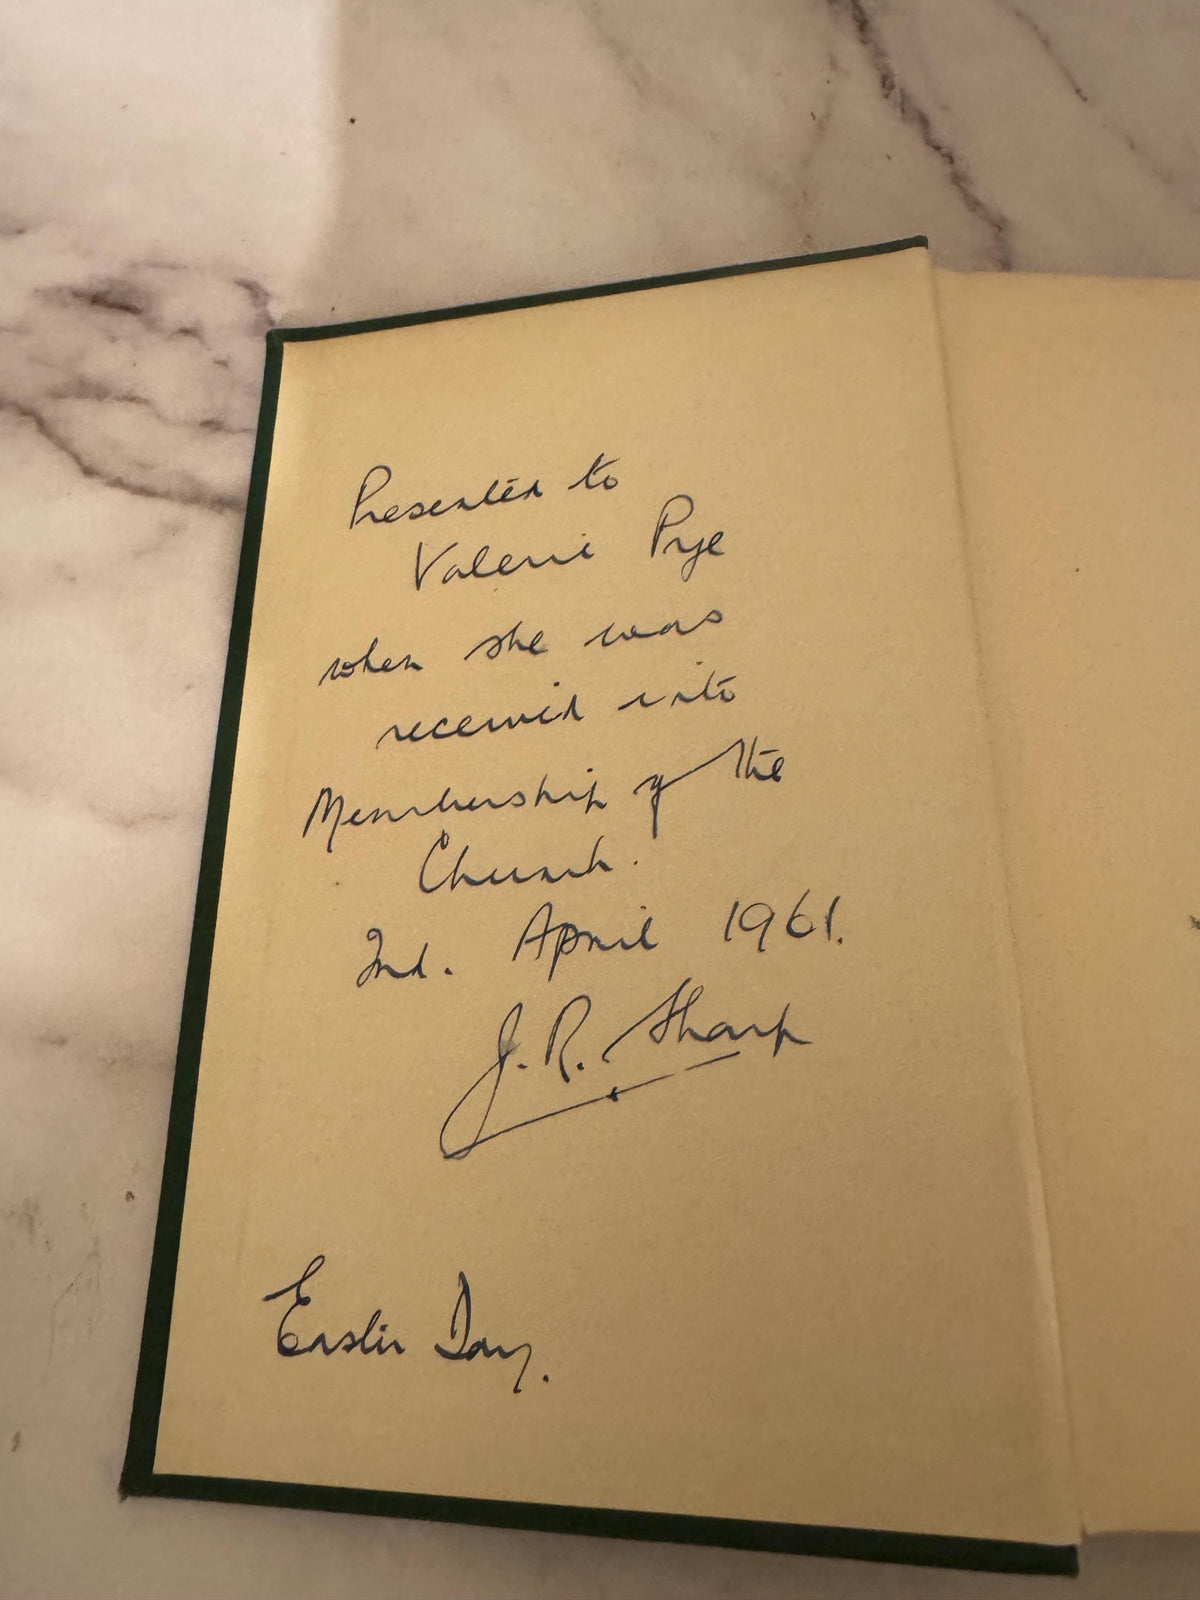 Presented to
Valerie Pye
when she was
received into
Membership of the
Church.
2nd. April 1961.
J. R. Sharp
Easter Day.